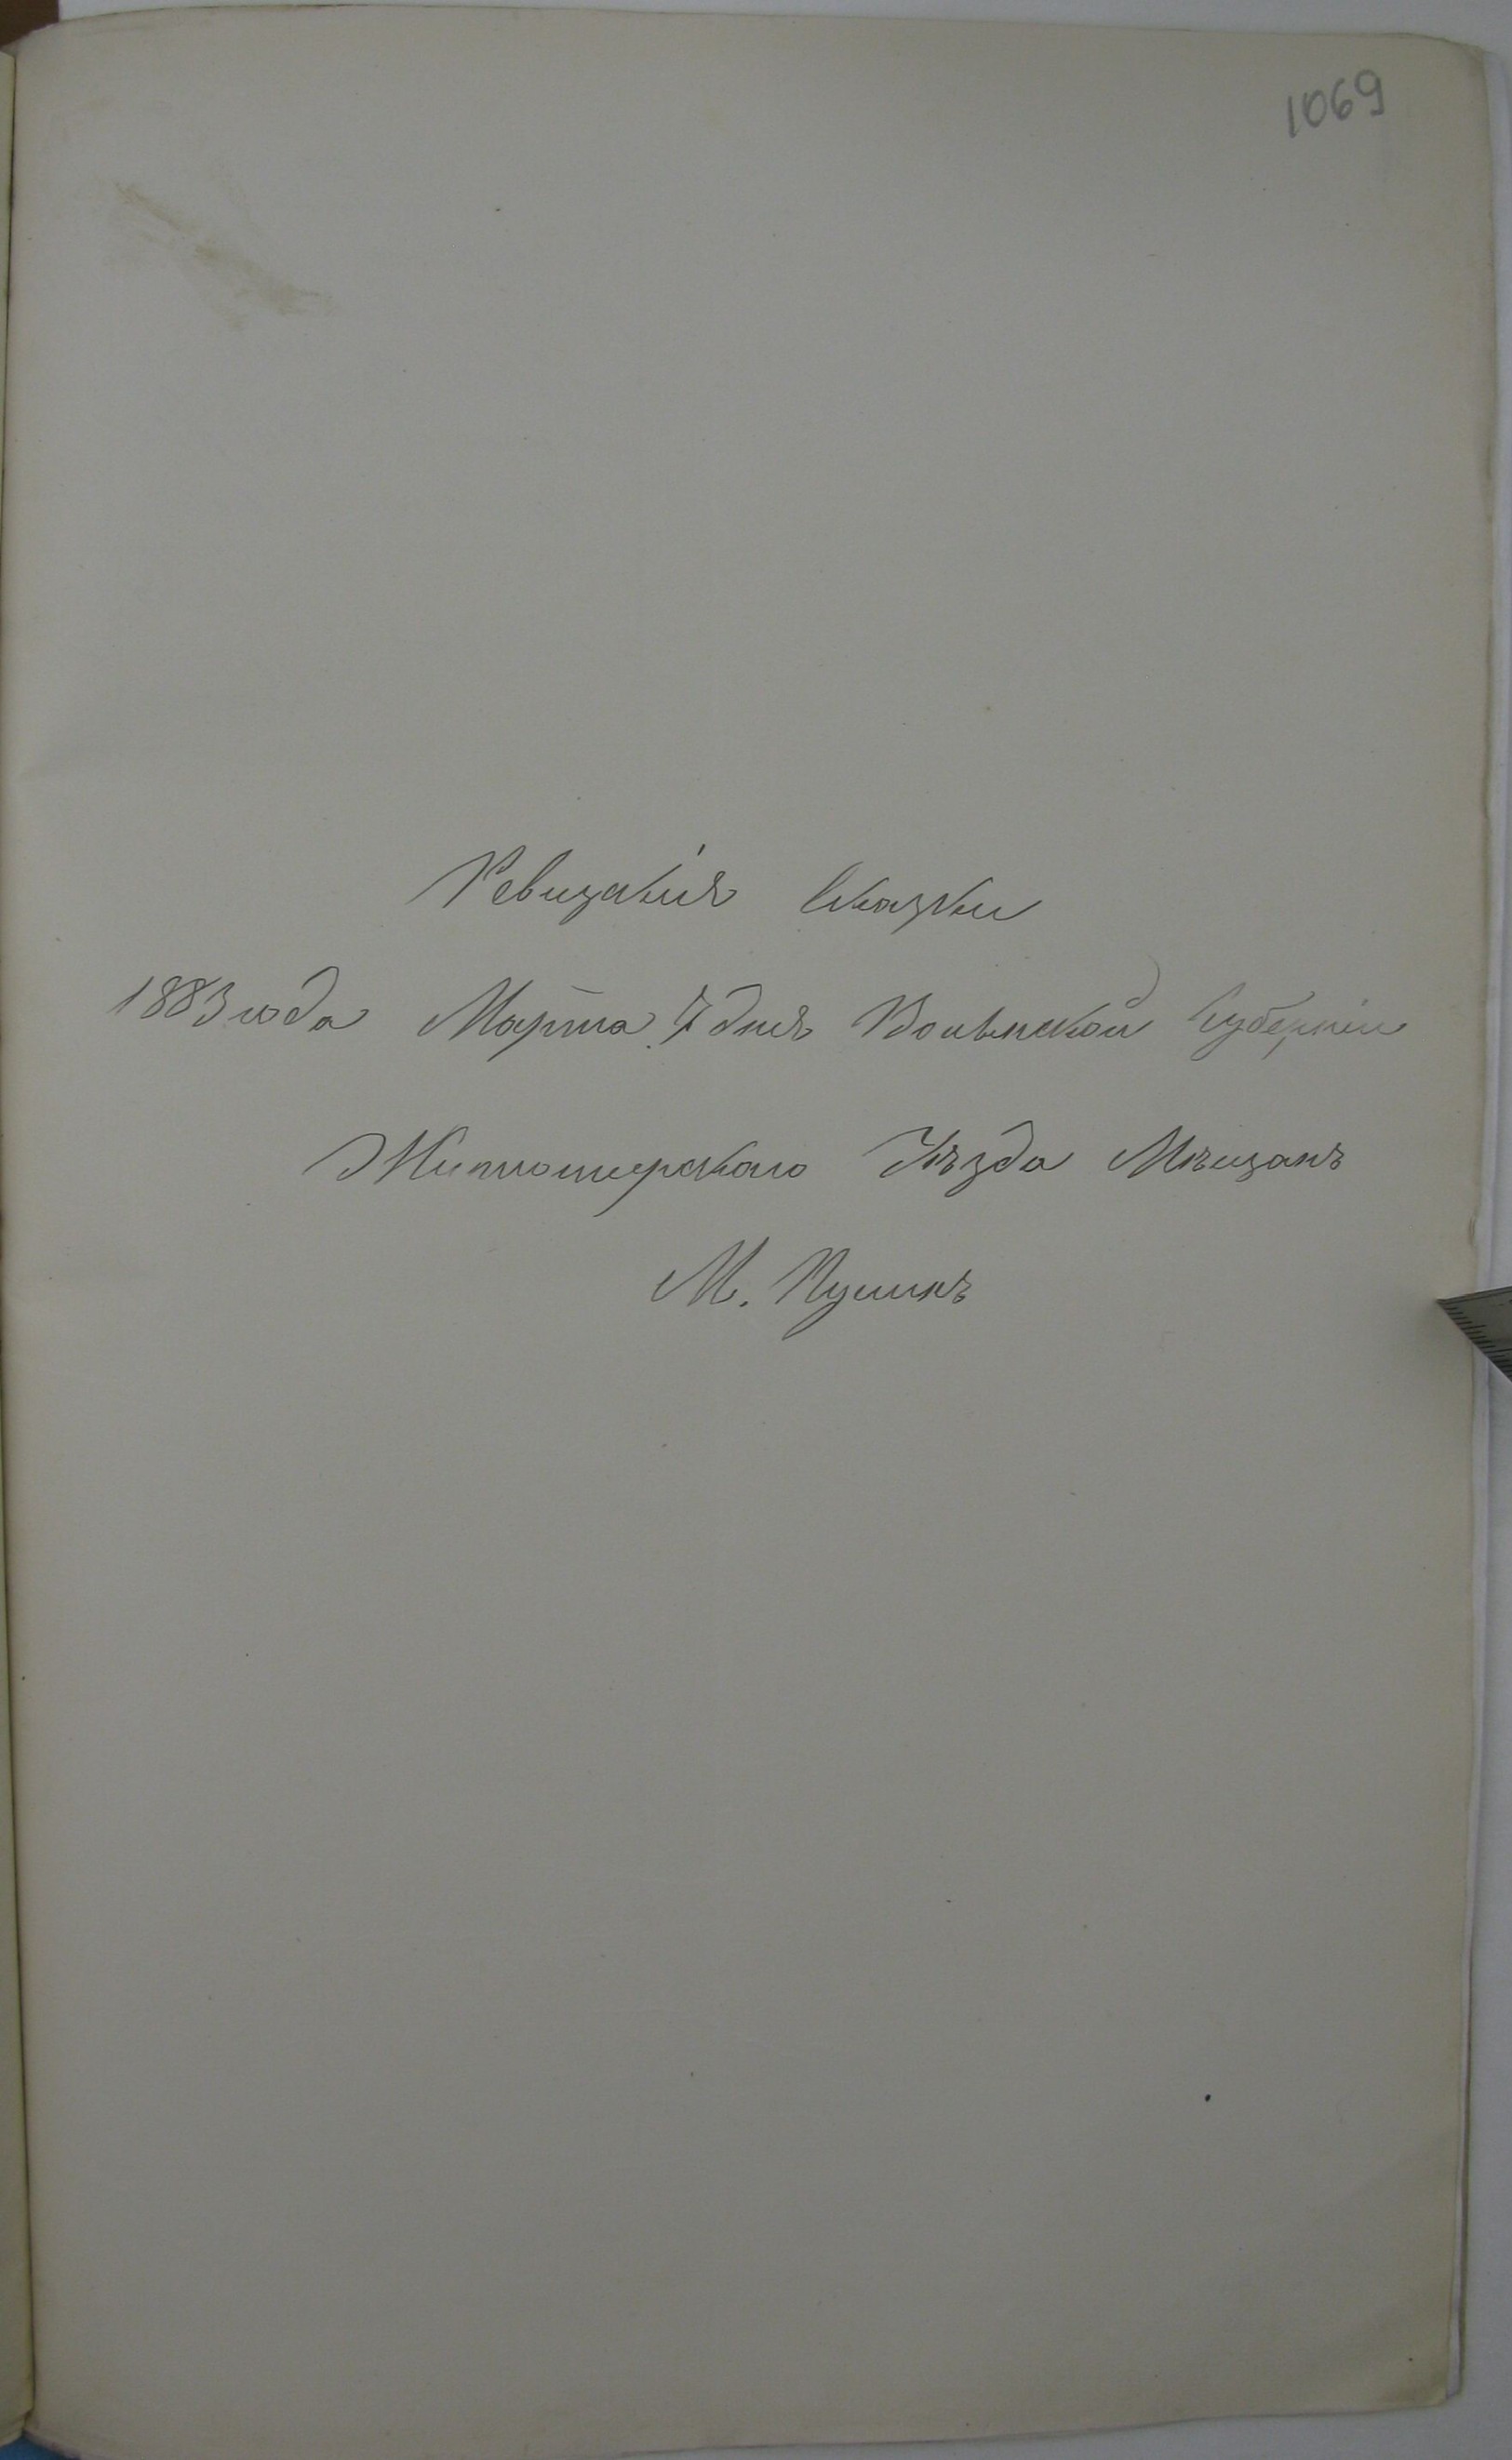 1069
Ревизскія Сказки
1883 года Марта 7 дня Волынской Губерніи
Житомирскаго Уѣзда Мѣщанъ
М. Пулинъ